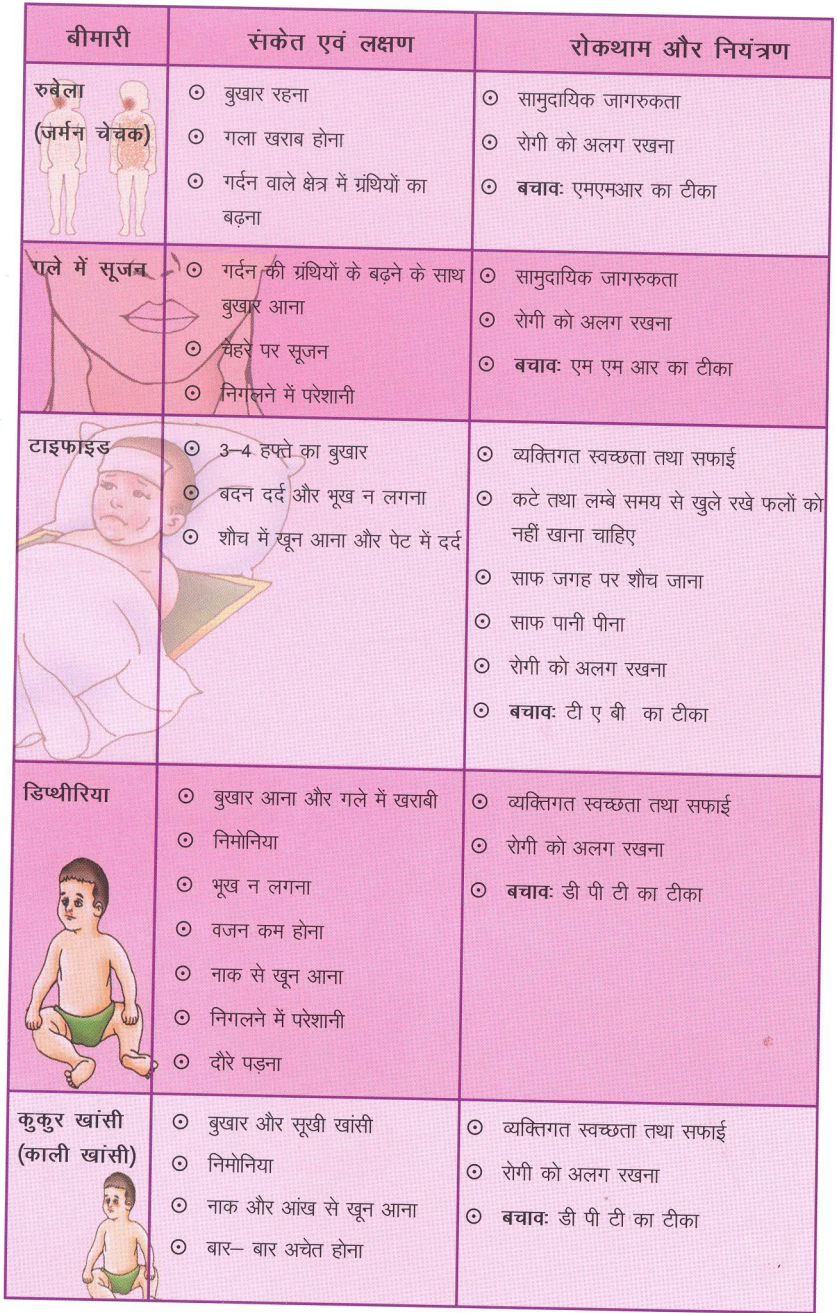 बीमारी
संकेत एवं लक्षण
रोकथाम और नियंत्रण
रुबेला
(जर्मन चेचक)
बुखार रहना
गला खराब होना
गर्दन वाले क्षेत्र में ग्रंथियों का
बढ़ना
सामुदायिक जागरुकता
रोगी को अलग रखना
बचावः एमएमआर का टीका
गले में सूजन
गर्दन की ग्रंथियों के बढ़ने के साथ
बुखार आना
चेहरे पर सूजन
निगलने में परेशानी
सामुदायिक जागरुकता
रोगी को अलग रखना
बचावः एम एम आर का टीका
टाइफाइड
3–4 हफ्ते का बुखार
बदन दर्द और भूख न लगना
शौच में खून आना और पेट में दर्द
व्यक्तिगत स्वच्छता तथा सफाई
कटे तथा लम्बे समय से खुले रखे फलों को
नहीं खाना चाहिए
साफ जगह पर शौच जाना
साफ पानी पीना
रोगी को अलग रखना
बचावः टी ए बी का टीका
डिप्थीरिया
बुखार आना और गले में खराबी
निमोनिया
भूख न लगना
वजन कम होना
नाक से खून आना
निगलने में परेशानी
दौरे पड़ना
व्यक्तिगत स्वच्छता तथा सफाई
रोगी को अलग रखना
बचावः डी पी टी का टीका
कुकुर खांसी
(काली खांसी)
बुखार और सूखी खांसी
निमोनिया
नाक और आंख से खून आना
बार– बार अचेत होना
व्यक्तिगत स्वच्छता तथा सफाई
रोगी को अलग रखना
बचावः डी पी टी का टीका